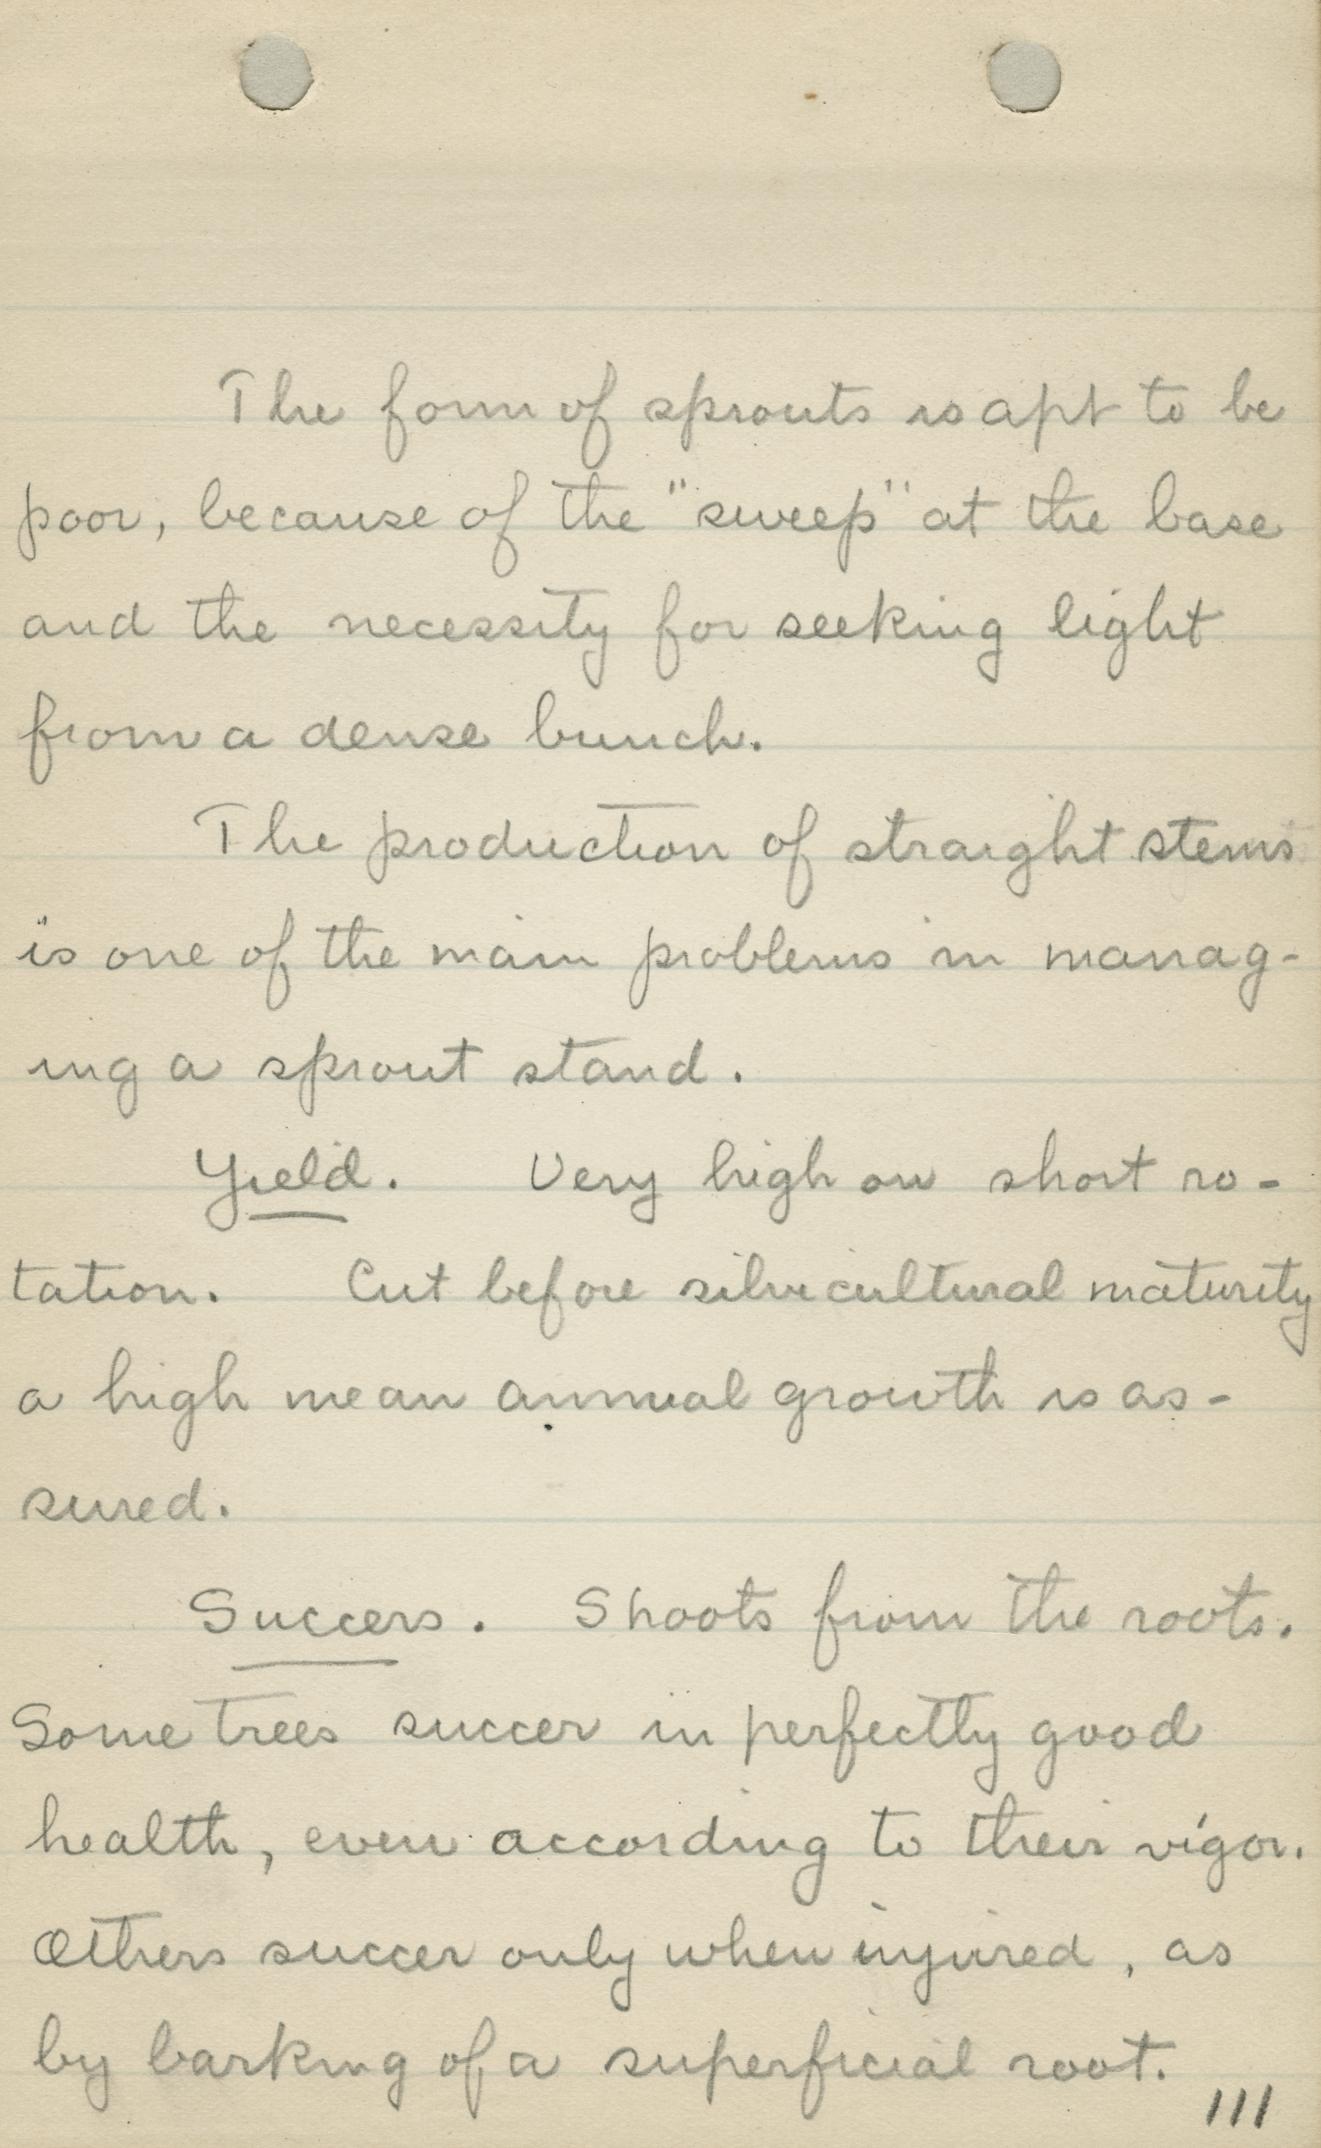 The form of sprouts is apt to be
poor, because of the "sweep" at the base
and the necessity for seeking light
from a dense bunch.
The production of straight stems
is one of the main problems in manag-
ing a sprout stand.
Yield. Very high on short ro-
tation. Cut before silvicultural maturity
a high mean annual growth is as-
sured.
Succers. Shoots from the roots.
Some trees succer in perfectly good
health, even according to their vigor.
Others succer only when injured, as
by barking of a superficial root.
111